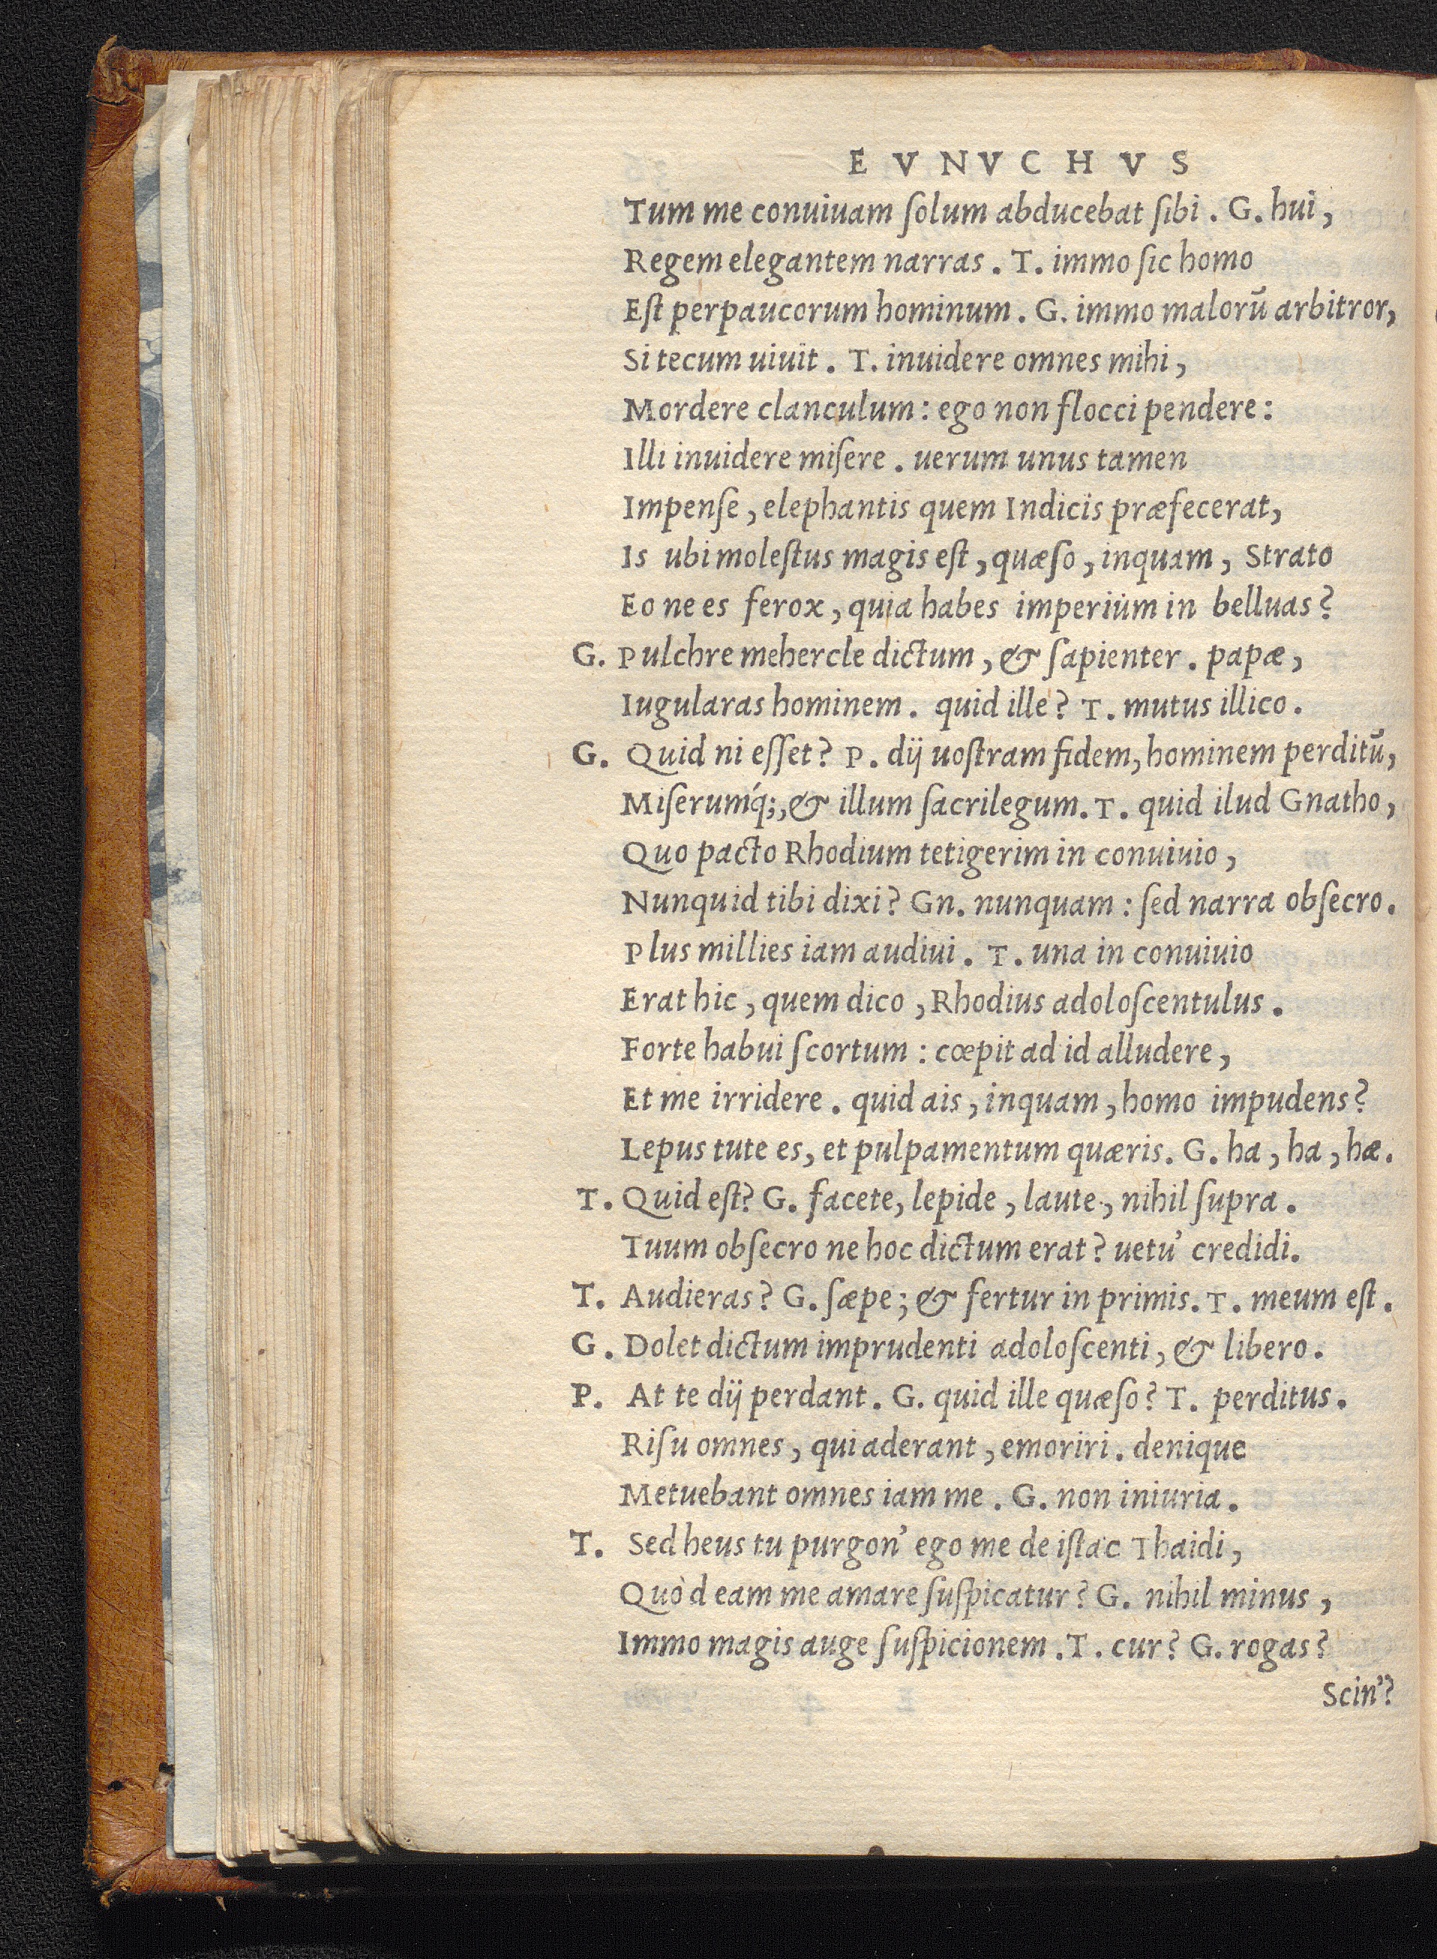 E V N V C H V S
Tum me conuiuam ſolum abducebat ſibi. G. hui,
Regem elegantem narras. T. immo ſic homo
Eſt perpaucorum hominum. G. immo malorū arbitror,
Si tecum uiuit. T. inuidere omnes mihi,
Mordere clanculum: ego non flocci pendere:
Illi inuidere miſere. uerum unus tamen
Impenſe, elephantis quem Indicis præfecerat,
Is ubi moleſtus magis eſt, quæſo, inquam, Strato
Eo ne es ferox, quia habes imperium in belluas?
G. Pulchre mehercle dictum, & ſapienter. papæ,
Iugularas hominem. quid ille? T. mutus illico.
G. Quid ni eſſet? P. dij uoſtram fidem, hominem perditū,
Miſerumq́;, & illum ſacrilegum. T. quid ilud Gnatho,
Quo pacto Rhodium tetigerim in conuiuio,
Nunquid tibi dixi? Gn. nunquam: ſed narra obſecro.
Plus millies iam audiui. T. una in conuiuio
Erat hic, quem dico, Rhodius adoloſcentulus.
Forte habui ſcortum: cœpit ad id alludere,
Et me irridere. quid ais, inquam, homo impudens?
Lepus tute es, et pulpamentum quæris. G. ha, ha, hæ.
T. Quid eſt? G. facete, lepide, laute, nihil ſupra.
Tuum obſecro ne hoc dictum erat? uetu' credidi.
T. Audieras? G. ſæpe; & fertur in primis. T. meum eſt.
G. Dolet dictum imprudenti adoloſcenti, & libero.
P. At te dij perdant. G. quid ille quæſo? T. perditus.
Riſu omnes, qui aderant, emoriri. denique
Metuebant omnes iam me. G. non iniuria.
T. Sed heus tu purgon' ego me de iſtac Thaidi,
Quòd eam me amare ſuſpicatur? G. nihil minus,
Immo magis auge ſuſpicionem. T. cur? G. rogas?
Scin'?